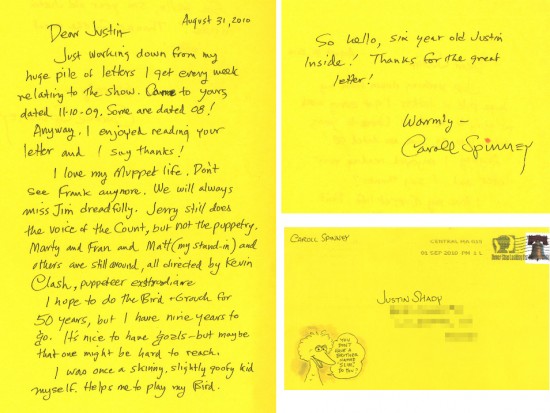 August 31, 2010
Dear Justin
Just working down from my
huge pile of letters I get every week
relating to the show. Came to yours,
dated 11-10-09. Some are dated 08!
Anyway. I enjoyed reading your
letter and I say thanks!
I love my Muppet life. Don't
see Frank anymore. We will always
miss Jim dreadfully. Jerry still does
the voice of the Count, but not the puppetry.
Marty and Fran and Matt (my stand-in) and
others are still around, all directed by Kevin
Clash, puppeteer extrordiare
I hope to do the Bird + Grouch for
50 years, but I have nine years to
go. It's nice to have goals - but maybe
that one might be hard to reach.
I was once a skinny, slightly goofy kid
myself. Helps me to play my Bird.
So hello, six year old Justin
inside! Thanks for the great
letter!
Warmly -
Caroll Spinney
CAROLL SPINNEY
CENTRAL MA
01 SEP 2010 PM
JUSTIN SHADY
YOU
DON'T
HAVE A
BROTHER
NAMED
DO YOU?